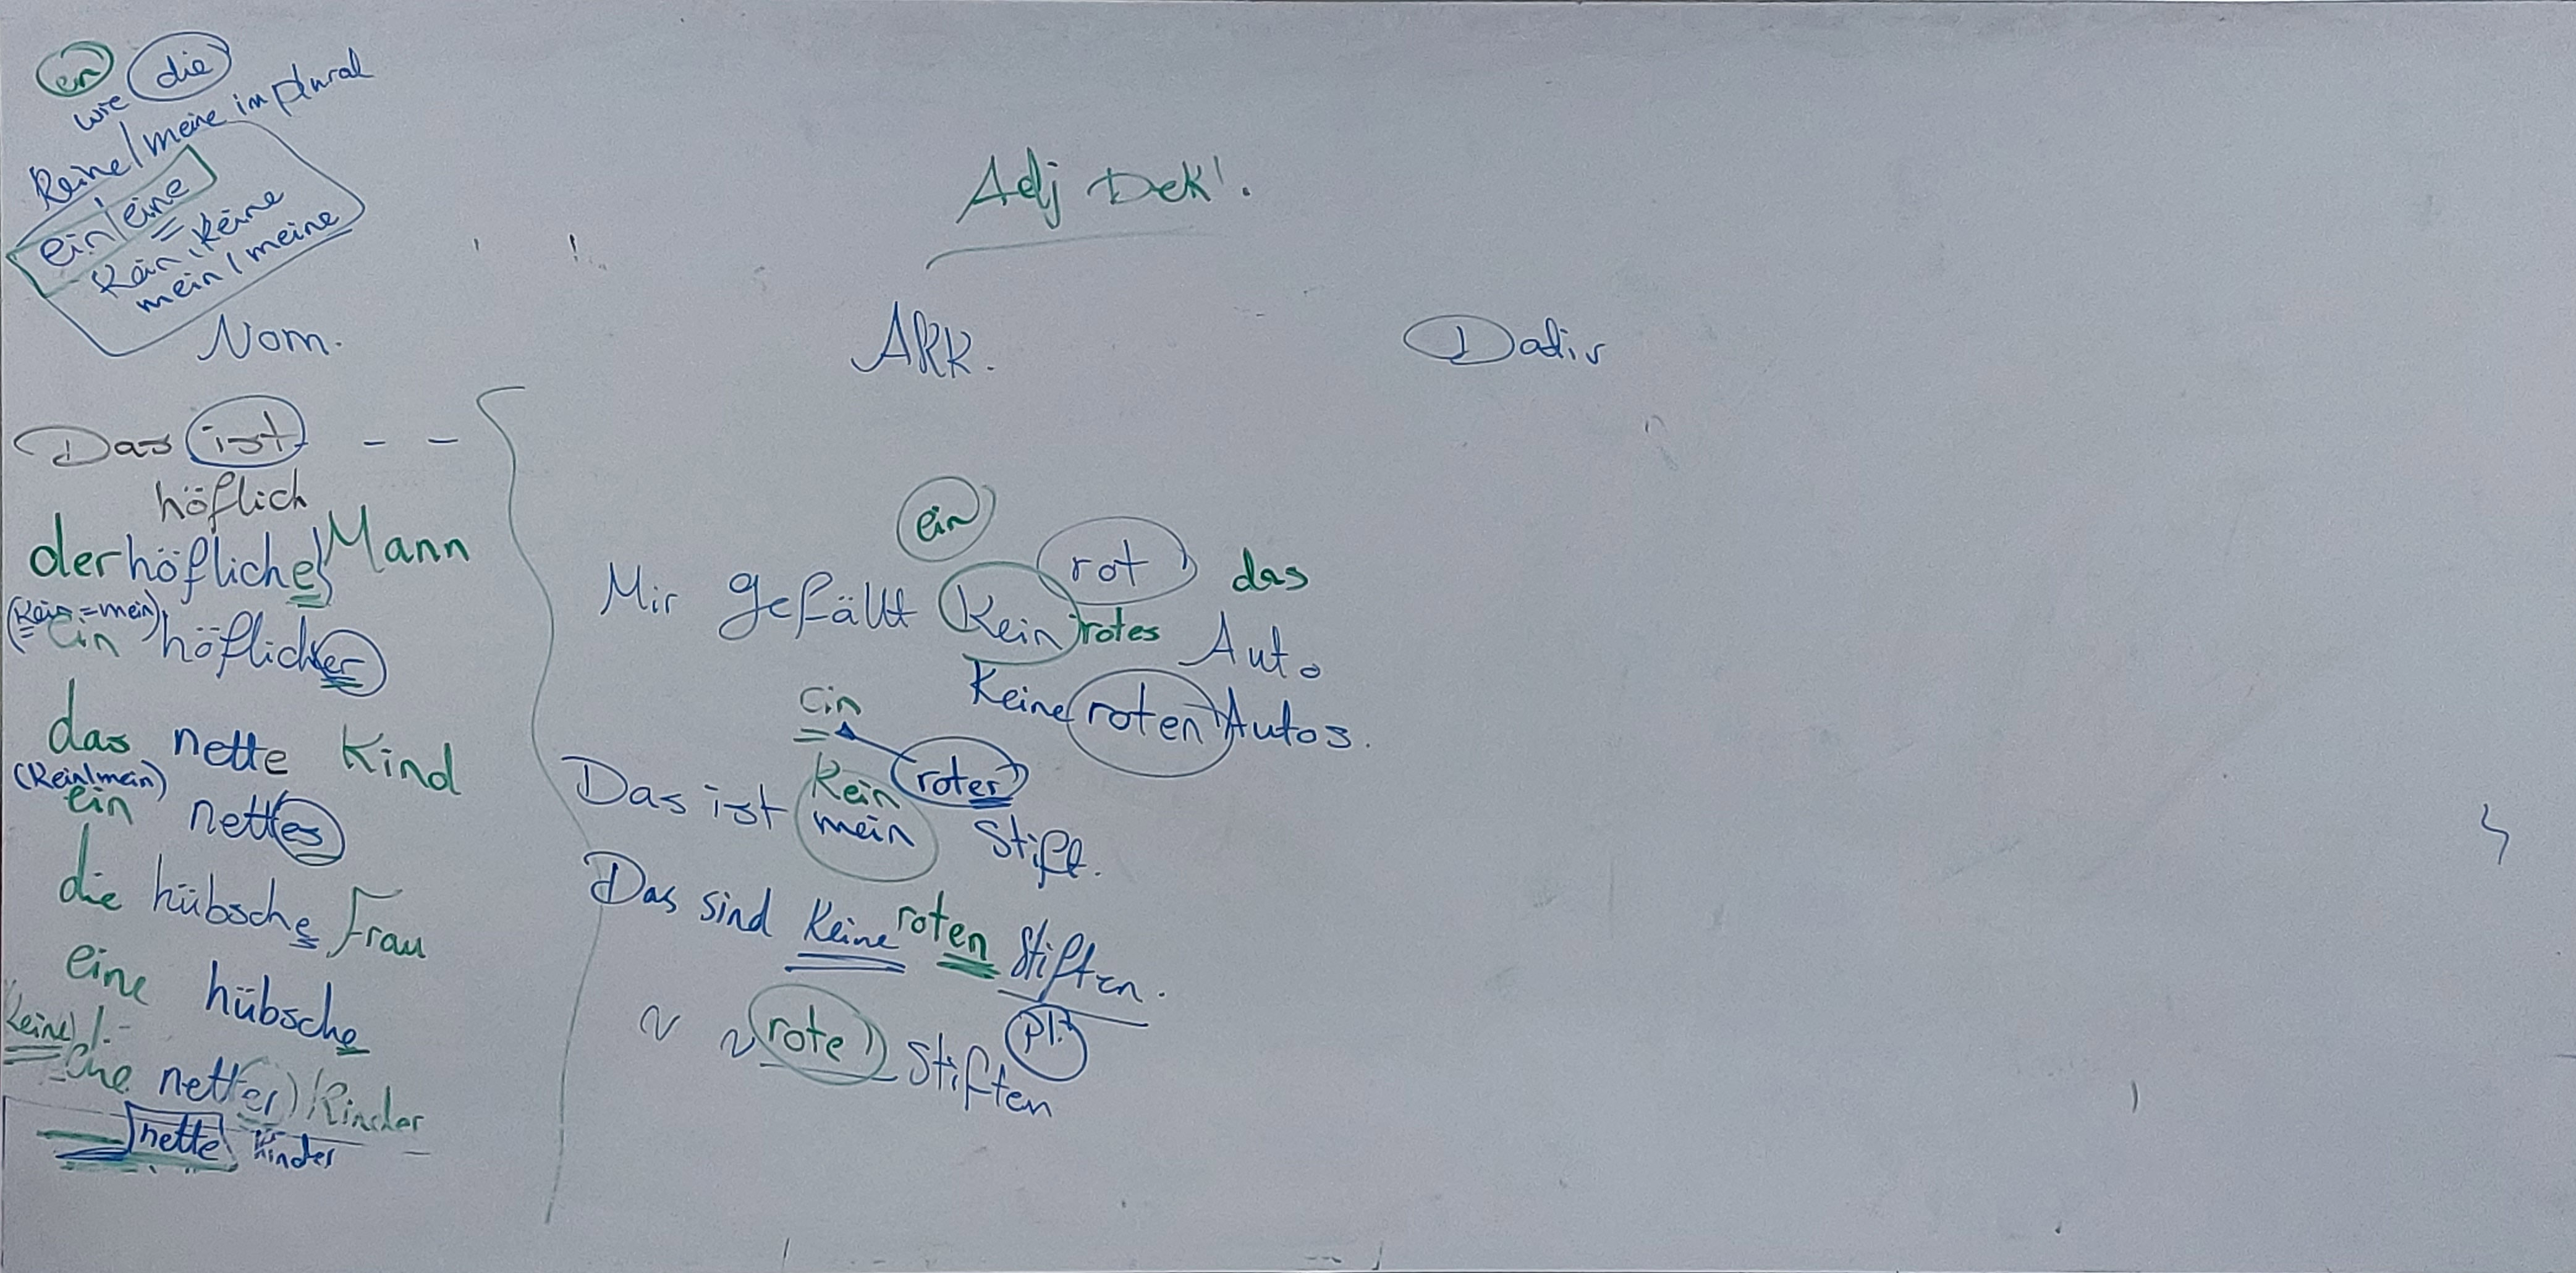 en die
wie
keine/meine im plural
ein/eine
kein, keine
mein/meine
Adj Dekl.
Nom.
Akk.
Dativ
Das ist - -
höflich
der höfliche Mann
(kein = mein)
ein höflicher
das nette Kind
(kein/mein)
ein nettes
die hübsche Frau
eine hübsche
keine
netter Kinder
nette Kinder
ein
rot das
Mir gefällt kein rotes Auto
keine roten Autos.
ein
kein roter
Das ist mein Stift.
Das sind keine roten Stiften.
pl.
~ ~ rote Stiften